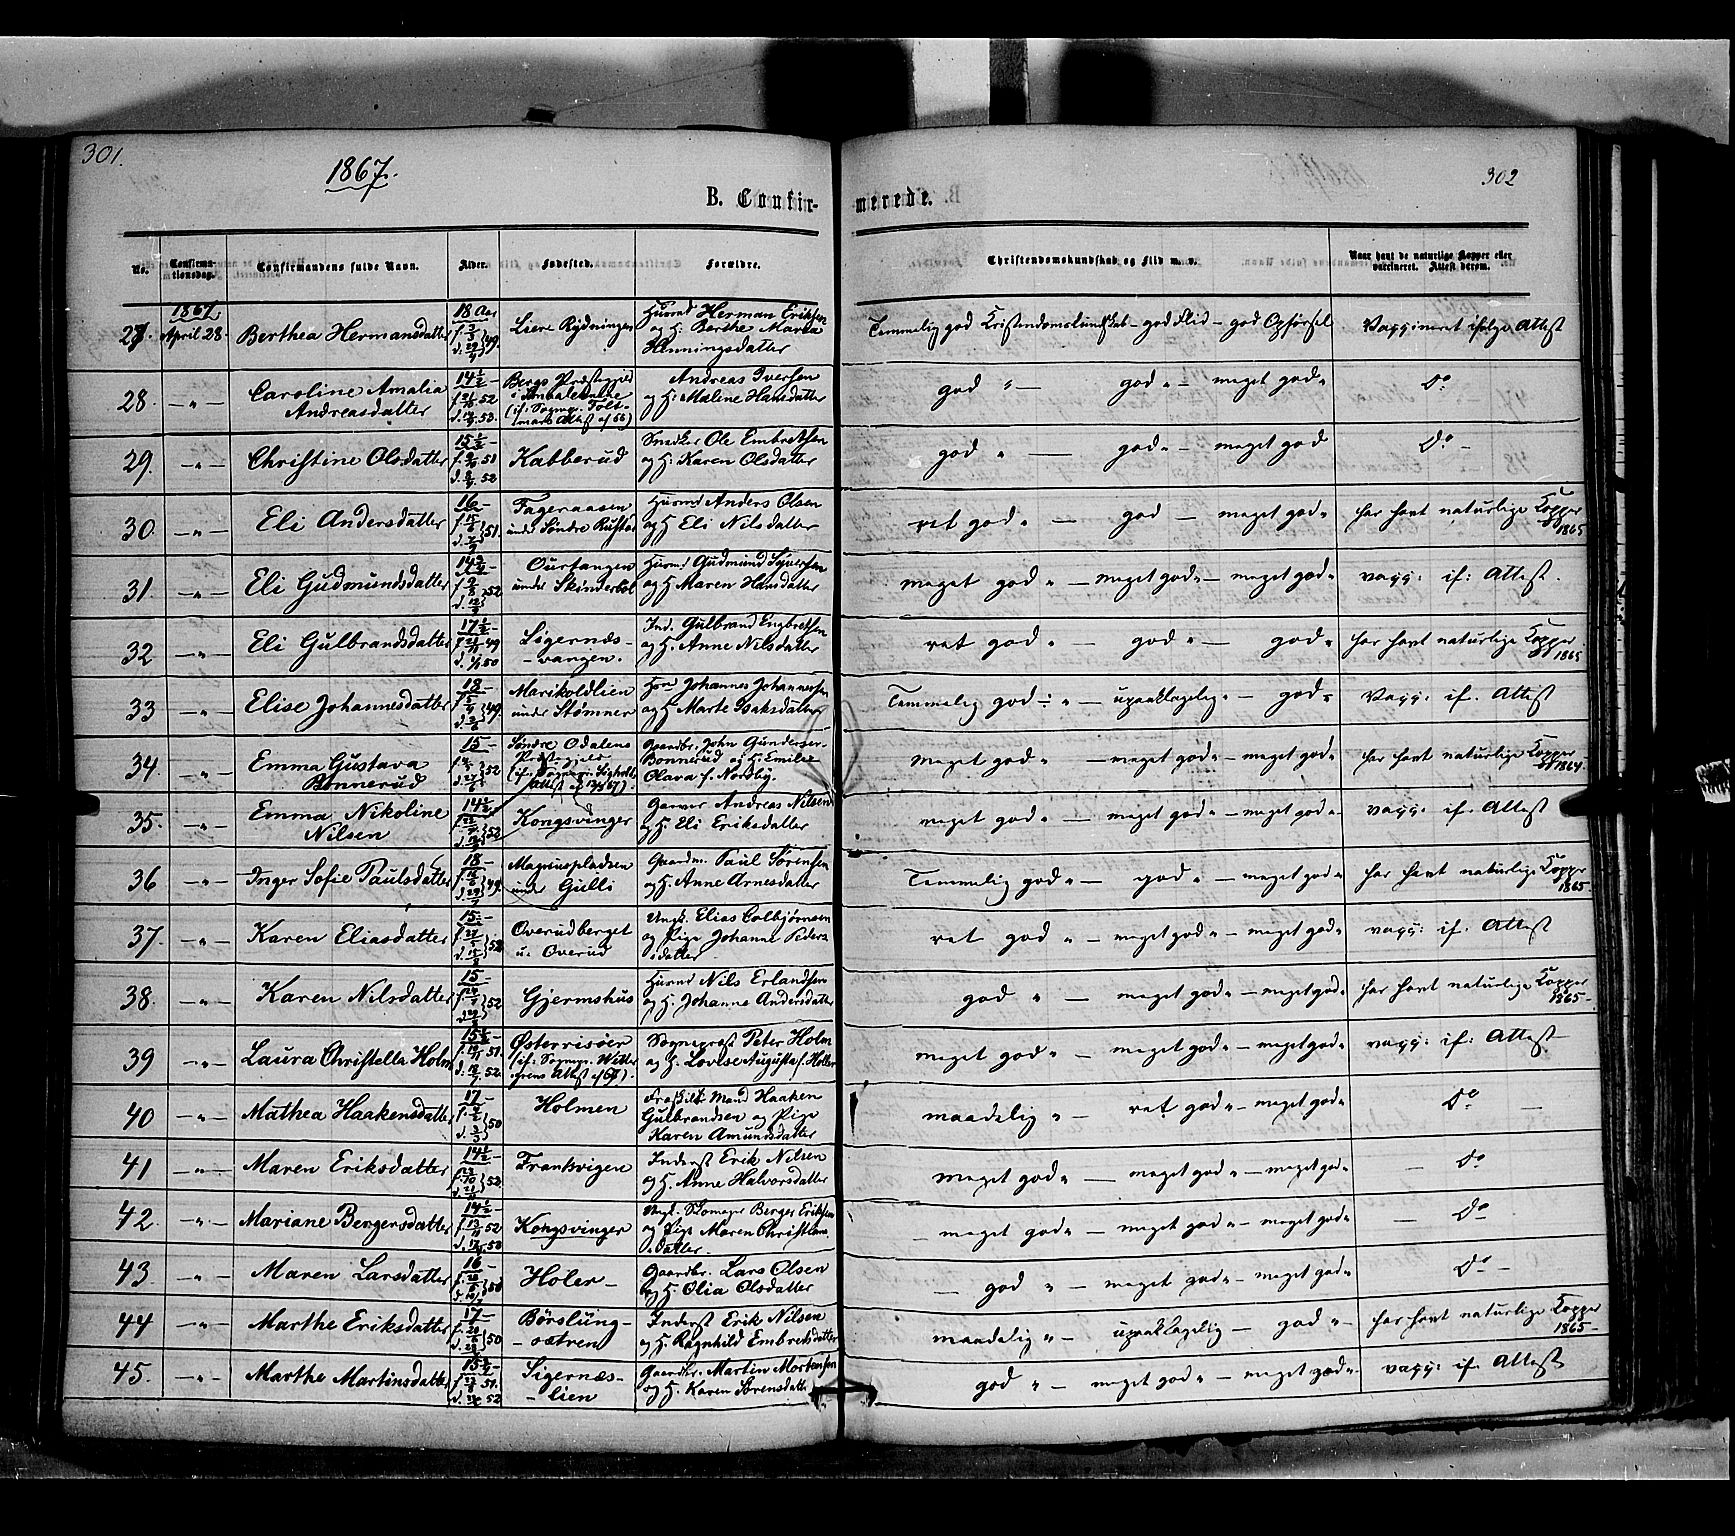 301.
1867.
302
B. Confir-
merede.
No.
Confirma-
tionsdag.
Confirmandens fulde Navn.
Alder.
Fødested.
Forældre.
Christendomskundskab og Flid m. v.
Naar havt de naturlige Kopper eller
vaccineret. Attest derom.
1867
27. April 28. Berthea Hermansdatter 18 Aar Liere Rydningen Huusmd Herman Eriksen
og H. Berthe Marea
Henningsdatter
Temmelig god Kristendomskundskab - god Flid - god Opførsel Vaccineret ifølge Attest
28. — " — Caroline Amalia
Andreasdatter 14½ — Bergs Præstegjeld
i Smaalenene
Andreas Iversen
og H. Malene Hansdatter
god " — god " — meget god " Do
29. — " — Christine Olsdatter 15½ — Kabberud Snedker Ole Embretsen
og H. Karen Olsdatter
god " — god " — meget god Do —
30. — " — Eli Andersdatter 16 — Fageraasen
under Søndre Rustad Huusmd Anders Olsen
og H. Eli Nilsdatter
ret god " — god — meget god " har havt naturlige Kopper
1865
31. — " — Eli Gudmundsdatter Ourtangen
under Skinderbøl Huusmd Gudmund Syversen
og H. Maren Hansdatter
meget god " — meget god " — meget god " vacc: if: Attest.
32 — " — Eli Gulbrandsdatter 17½ — Sigernæs-
- vangen. Ind. Gulbrand Engbretsen
og H. Anne Nilsdatter
ret god " — god " — god " har havt naturlige Kopper
1865
33 — " — Elise Johannesdatter 18 — Marikoldlien
under Stømner Johannes Johannessen
og H. Marte Isaksdatter
Temmelig god " — upaaklagelig " — god " Vacc: if. Attest
34 — " — Emma Gustava
Bonnerud 15 — Søndre Odalens
Gaardbr. John Gundersen
Bonnerud og H. Emilie
Olava f. Nordby.
meget god " — meget god " — meget god " har havt naturlige Kopper
1864.
35. — " — Emma Nikoline
Nilsen 14½ Kongsvinger Garver Andreas Nilsen
og H. Eli Eriksdatter
meget god " — meget god " — meget god " vacc: if. Attest
36 — " — Inger Sofie Paulsdatter 18 — Magnuspladsen
under Gulli Gaardm. Paul Sørensen
og H. Anne Arnesdatter
Temmelig god " — god " — meget god " har havt naturlige Kopper
1865
37. — " — Karen Eliasdatter 15 — Overudberget
u. Overud Ungk. Elias Colbjørnsen
og Pige Johanne Peders
datter
ret god " — meget god " — meget god " vacc: if. Attest
38. — " — Karen Nilsdatter 15 — Gjermshus Huusmd Nils Erlandsen
og H. Johanne Andersdatter
god " — meget god " — meget god " har havt naturlige Kopper
1865 —
39 — " — Laura Christella Holm 15½ — Østerrisøer
Sogneprest Peter Holm
og H. Lovise Augusta f. Holler
meget god " — meget god " — meget god " vacc: if. Attest
40 — " — Mathea Haakensdatter 17 — Holmen Fraskilt Mand Haaken
Gulbrandsen og Pige
Karen Amundsdatter
maadelig " — ret god " — meget god " Do —
41 — " — Maren Eriksdatter 14½ — Franksvigen Inderst Erik Nilsen
og H. Anne Halvorsdatter
meget god " — meget god " — meget god " — Do
42. — " — Mariane Bergersdatter 14½ — Kongsvinger Ungk. Skomager Berger Eriksen
og Pige Maren Christians
datter
meget god " — meget god " — meget god " — Do
43. — " — Maren Larsdatter 16 — Holer — Gaardbr. Lars Olsen
og H. Olia Olsdatter
god " — meget god " — meget god " Do —
44 — " — Marthe Eriksdatter 17 — Børslung-
-østren Inderst Erik Nilsen
og H. Ragnhild Embretsdatter
maadelig " — upaaklagelig — god " — har havt naturlige Kopper
1865 —
45. — " — Marthe Martinsdatter Sigernæs-
- lien Gaardbr. Martin Mortensen
og H. Karen Sørensdatter
god " — meget god " — meget god " — vacc: if. Attest